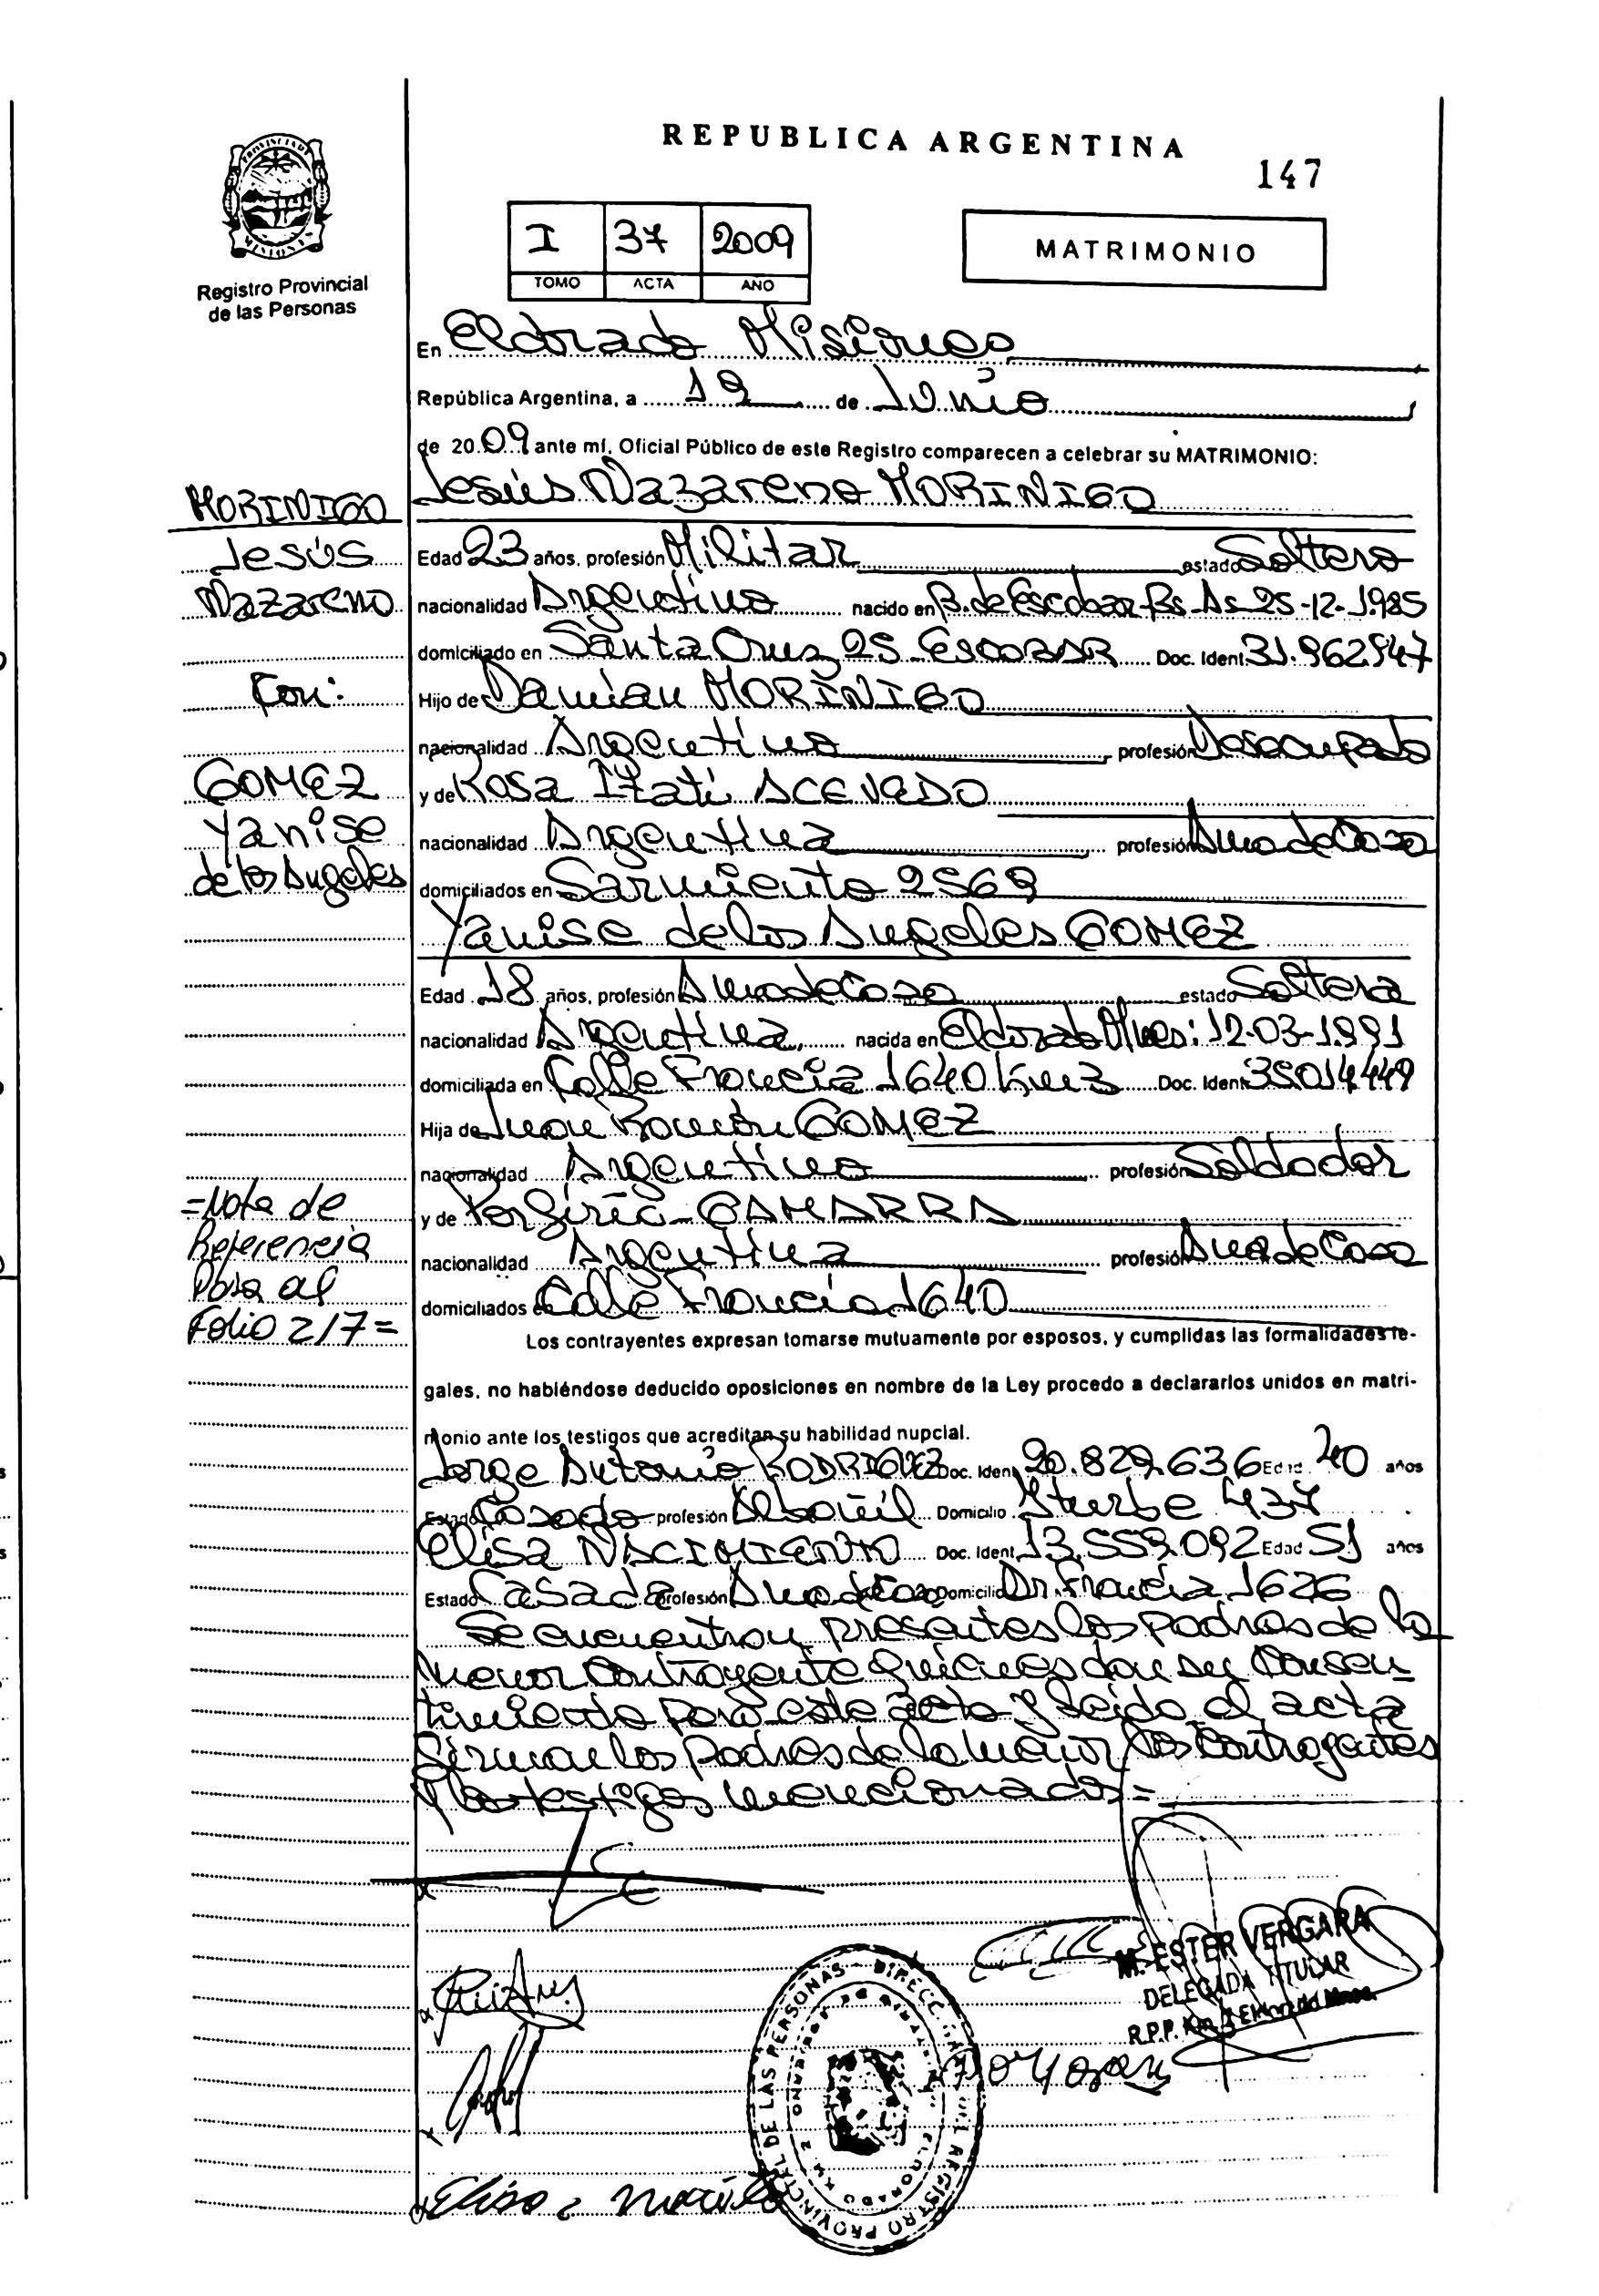 REPUBLICA ARGENTINA
147
I 37 2009
TOMO ACTA AÑO
MATRIMONIO
Registro Provincial
de las Personas
En Eldorado Misiones
República Argentina, a 19 de Junio
de 2009 ante mí, Oficial Público de este Registro comparecen a celebrar su MATRIMONIO:
Jesús Nazareno MORINIGO
MORINIGO
Jesús
Nazareno
Con:
GOMEZ
Yanise
de los Angeles
Edad 23 años, profesión Militar estado Soltero
nacionalidad Argentino nacido en B. de Escobar Bs. As 25-12-1985
domiciliado en Santa Cruz 25 ESCOBAR Doc. Ident. 31.962.947
Hijo de Damián MORINIGO
nacionalidad Argentino profesión Desocupado
y de Rosa Itatí ACEVEDO
nacionalidad Argentina profesión Ama de Casa
domiciliados en Sarmiento 2569
Yanise de los Angeles GOMEZ
Edad 18 años, profesión Ama de Casa estado Soltera
nacionalidad Argentina nacida en Eldorado Mnes: 12-03-1991
domiciliada en Calle Francia 1640 Doc. Ident. 35.014.449
Hija de Juan Ramón GOMEZ
nacionalidad Argentino profesión Soldador
y de Porfiria GAMARRA
nacionalidad Argentina profesión Ama de Casa
domiciliados en Calle Francia 1640
=Nota de
Referencia
Pasa al
Folio 217=
Los contrayentes expresan tomarse mutuamente por esposos, y cumplidas las formalidades le-
gales, no habiéndose deducido oposiciones en nombre de la Ley procedo a declararlos unidos en matri-
monio ante los testigos que acreditan su habilidad nupcial.
Jorge Antonio RODRIGUEZ Doc. Ident. 20.829.636 Edad 40 años
Estado Casado profesión Albañil Domicilio Iturbe 437
Elisa NACIMIENTO Doc. Ident. 13.559.092 Edad 51 años
Estado Casada profesión Ama de Casa Domicilio Dr. Francia 1626
Se encuentran presentes los padres de la
menor contrayente quienes dan su consen
timiento para este acto y leído el acta
firman los padres de la menor los contrayentes
y los testigos mencionados=
M. ESTER VERGARA
DELEGADA TITULAR
R.P.P. Km. Eldorado Mnes.
Elisa